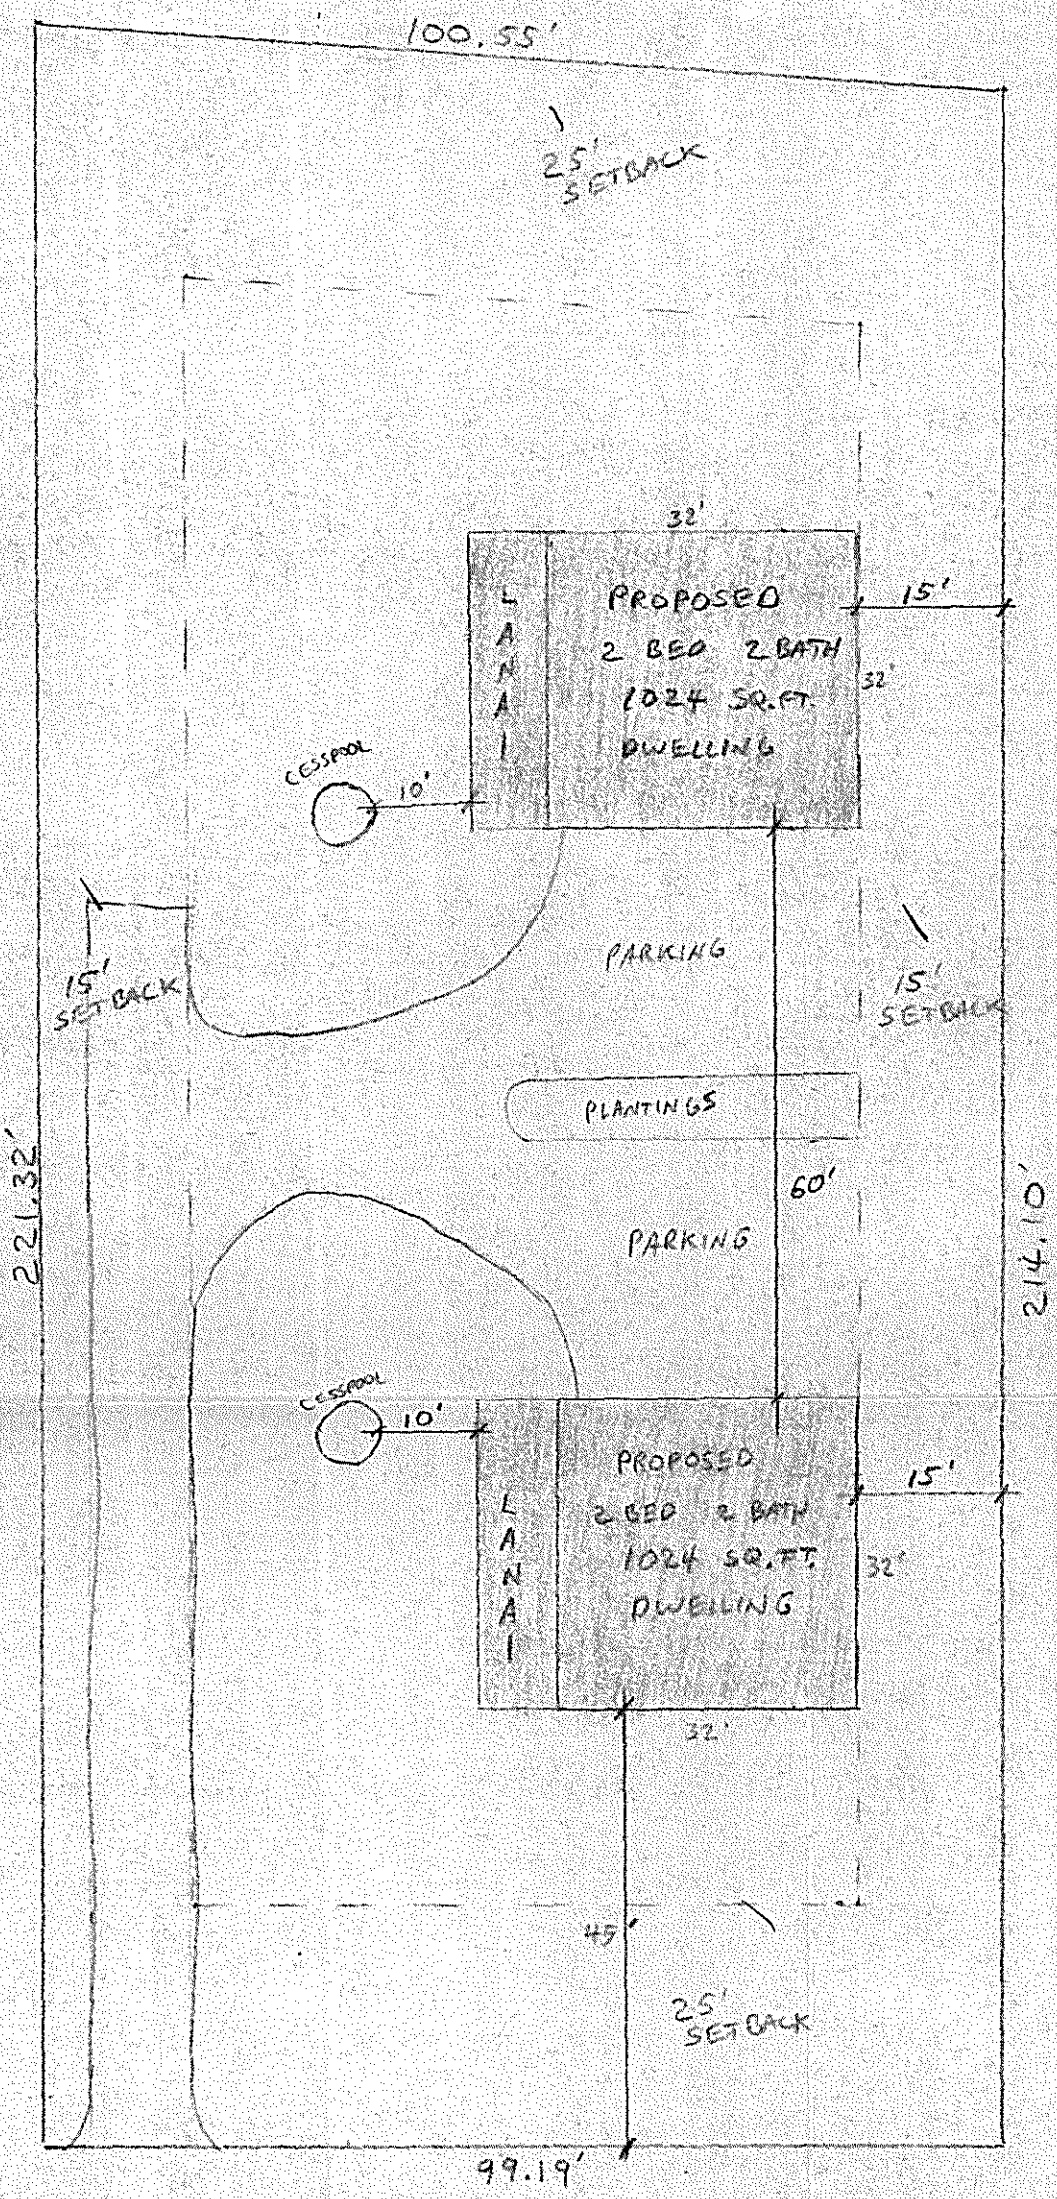 100.55'
25'
SETBACK
32'
LANAI
PROPOSED
2 BED 2 BATH
1024 SQ.FT.
DWELLING
15'
32'
CESSPOOL
10'
PARKING
15'
SETBACK
15'
SETBACK
PLANTINGS
221.32'
60'
214.10'
PARKING
CESSPOOL
10'
LANAI
PROPOSED
2 BED 2 BATH
1024 SQ.FT.
DWELLING
15'
32'
32'
45'
25'
SETBACK
99.19'